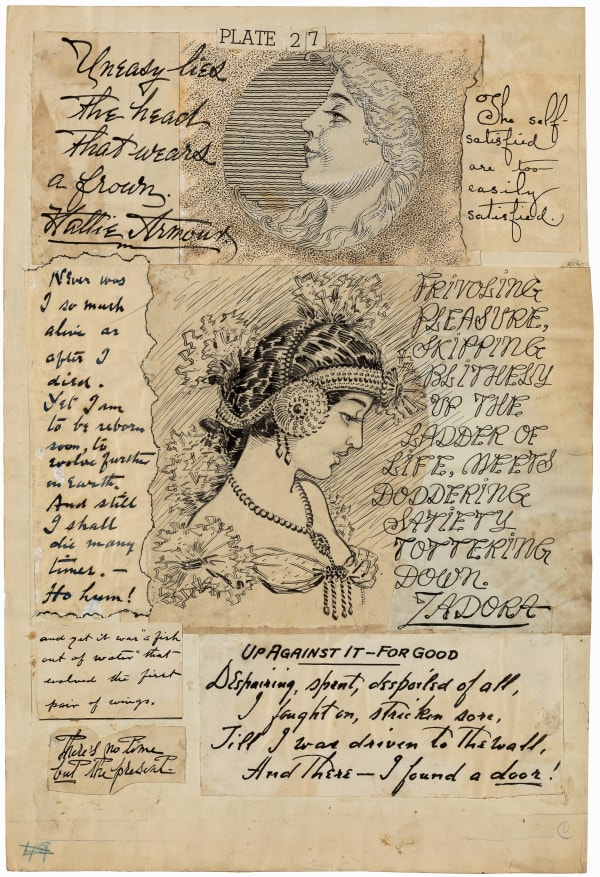 PLATE 27
Uneasy lies
the head
that wears
a frown.
Hattie Armour
The self-
satisfied
are too
easily
satisfied.
Never was
I so much
alive as
after I
died.
Yet I am
to be reborn
soon, to
evolve further
on Earth.
And still
I shall
die many
times. —
Ho hum!
FRIVOLING
PLEASURE,
SKIPPING
BLITHELY
UP THE
LADDER OF
LIFE, MEETS
DODDERING
SATIETY
TOTTERING
DOWN.
ZADORA
and yet it was "a fish
out of water" that
evolved the first
pair of wings.
There's no time
but the present
UP AGAINST IT — FOR GOOD
Despairing, spent, despoiled of all,
I fought on, stricken sore,
Till I was driven to the wall,
And there — I found a door!